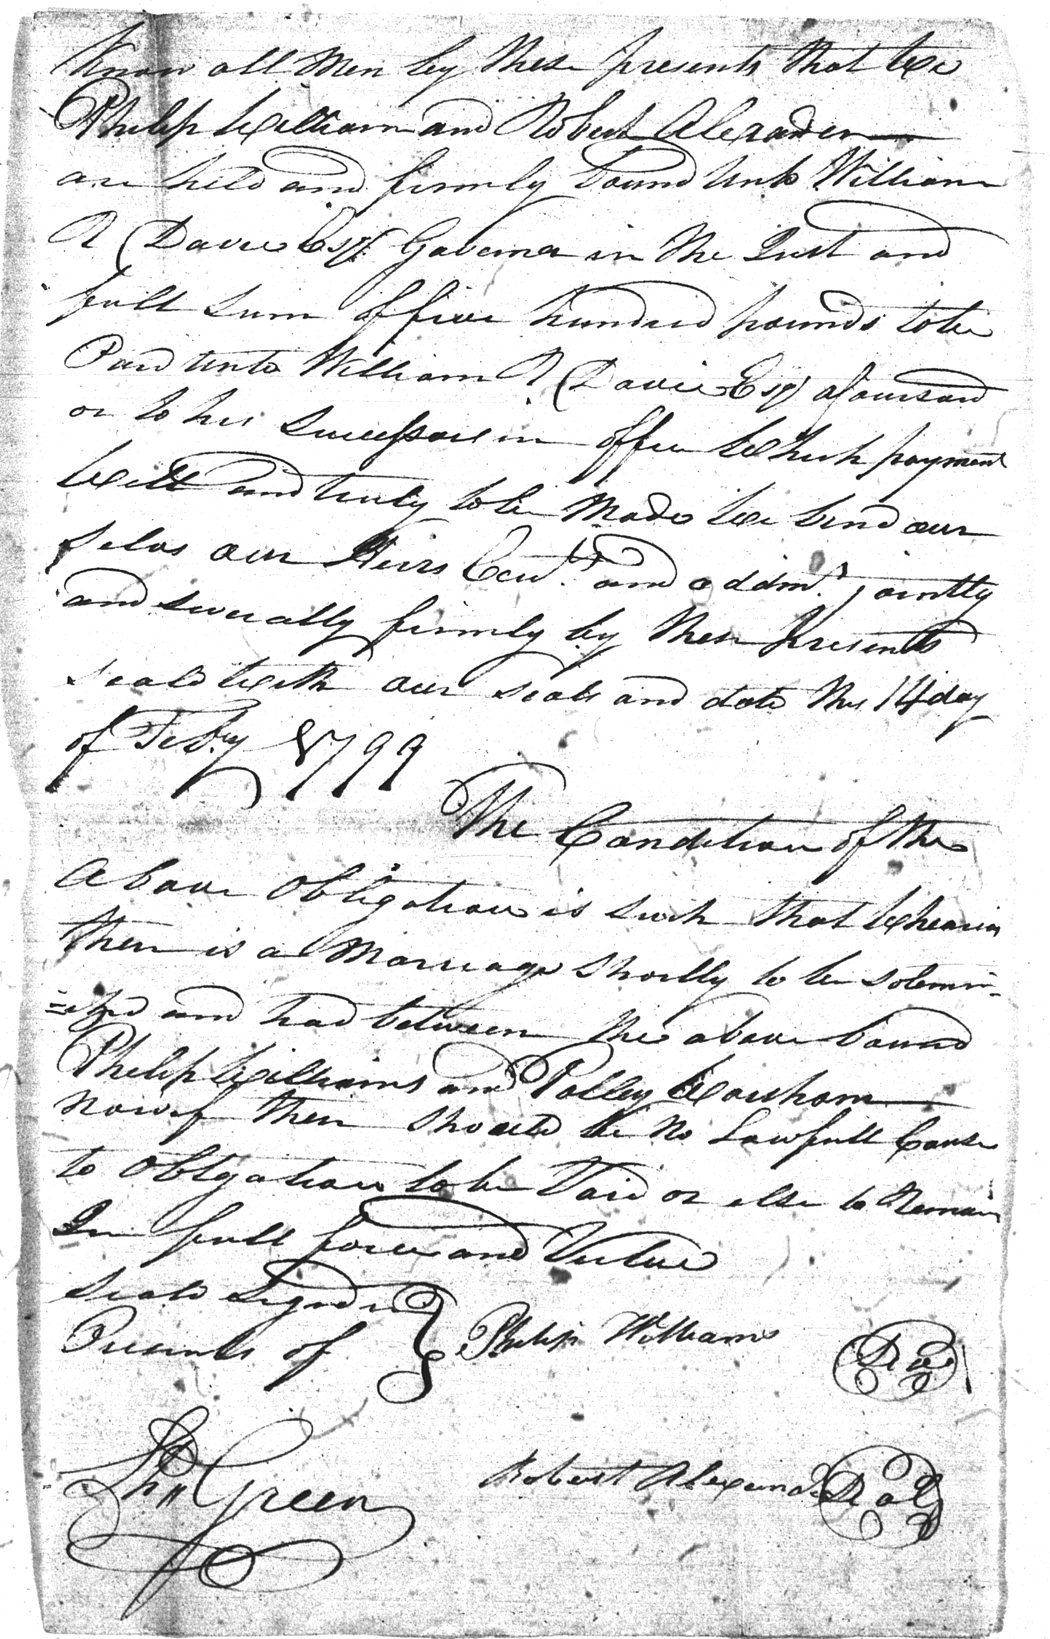 Know all Men by these presents that we
Philip William and Robert Alexander
are held and firmly bound unto William
R Davie Esqr. Governor in the Just and
full sum of five hundred pounds to be
Paid unto William R Davie Esqr aforesaid
or to his Successors in office which payment
will and truly to be Made we bind our
selvs our Heirs Exu.rs and addm.rs jointly
and severally firmly by these presents
seald with our seals and date this 14 day
of Feb.ry 1799
The Condition of the
Above Obligation is such that whereas
there is a Marriage Shortly to be solemn-
=ized and had between the above bound
Philip Williams and Polley
Now if there should be No Lawfull Cause
to Obligation to be Void or else to Remain
In full force and Virtue
Seald Signd in
Presents of
Philip Williams Seal
Robert Alexander Seal
Jn Green